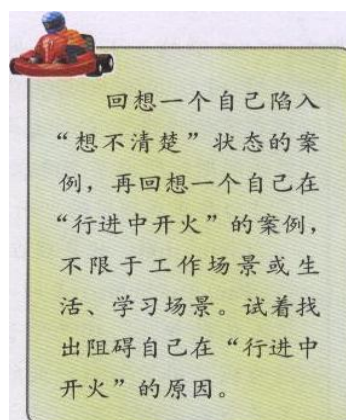 回想一个自己陷入
“想不清楚”状态的案
例，再回想一个自己在
“行进中开火”的案例，
不限于工作场景或生
活、学习场景。试着找
出阻碍自己在“行进中
开火”的原因。